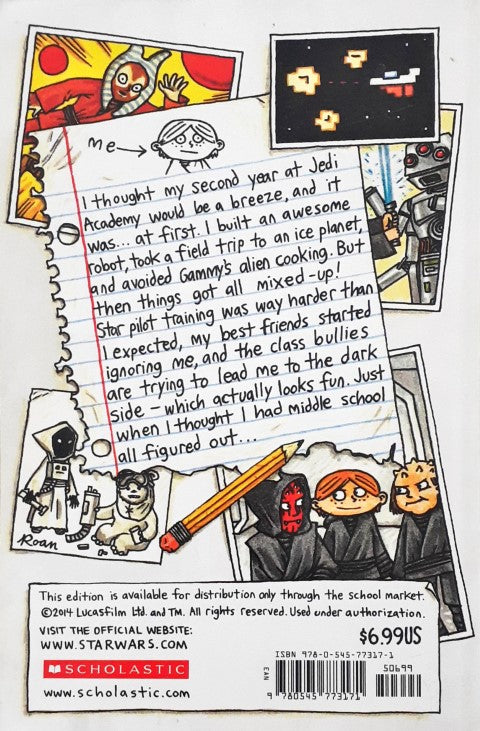 me
I thought my second year at Jedi
Academy would be a breeze, and it
was... at first. I built an awesome
robot, took a field trip to an ice planet,
and avoided Gammy's alien cooking. But
then things got all mixed-up!
Star pilot training was way harder than
I expected, my best friends started
ignoring me, and the class bullies
are trying to lead me to the dark
side - which actually looks fun. Just
when I thought I had middle school
all figured out...
Roan
This edition is available for distribution only through the school market.
©2014 Lucasfilm Ltd. and TM. All rights reserved. Used under authorization.
VISIT THE OFFICIAL WEBSITE:
WWW.STARWARS.COM
$6.99US
SCHOLASTIC
www.scholastic.com
ISBN 978-0-545-77317-1
50699
EAN
9 780545 773171